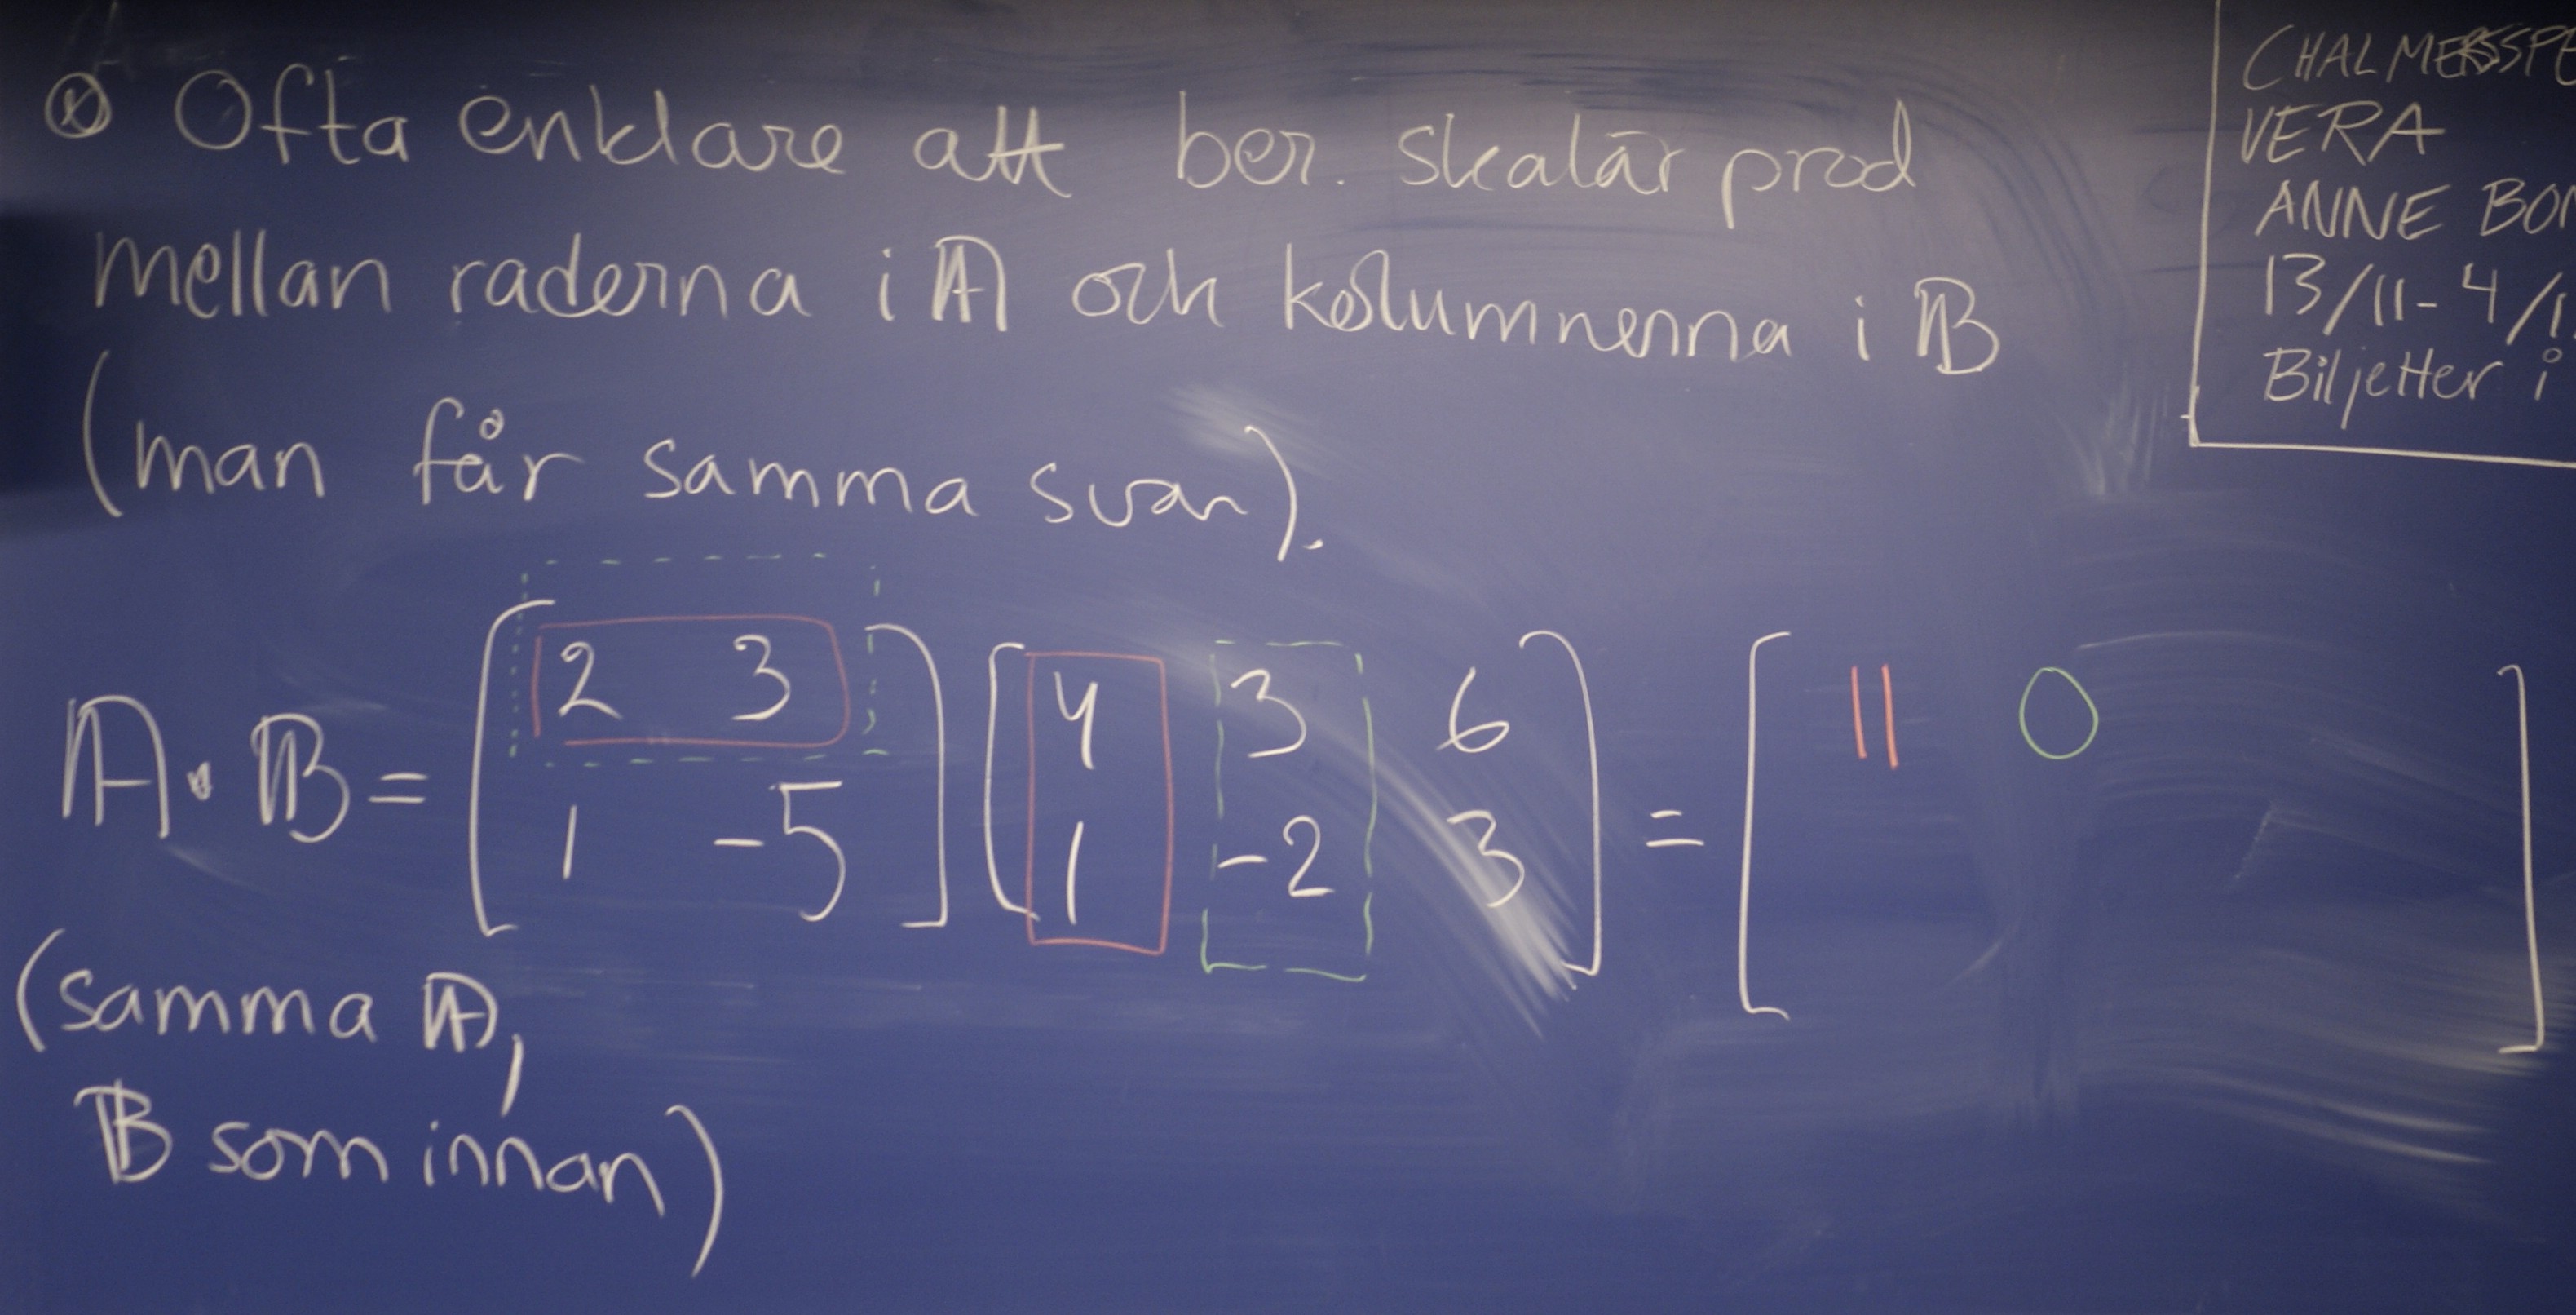 ⊗ Ofta enklare att ber. skalärprod
mellan raderna i A och kolumnerna i B
(man får samma svar).
A · B = [ 2 3 ] [ 4 3 6 ] = [ 11 0 ]
1 -5 1 -2 3
(samma A,
B som innan)
CHALMERSSPE
VERA
ANNE BON
13/11-4/1
Biljetter i